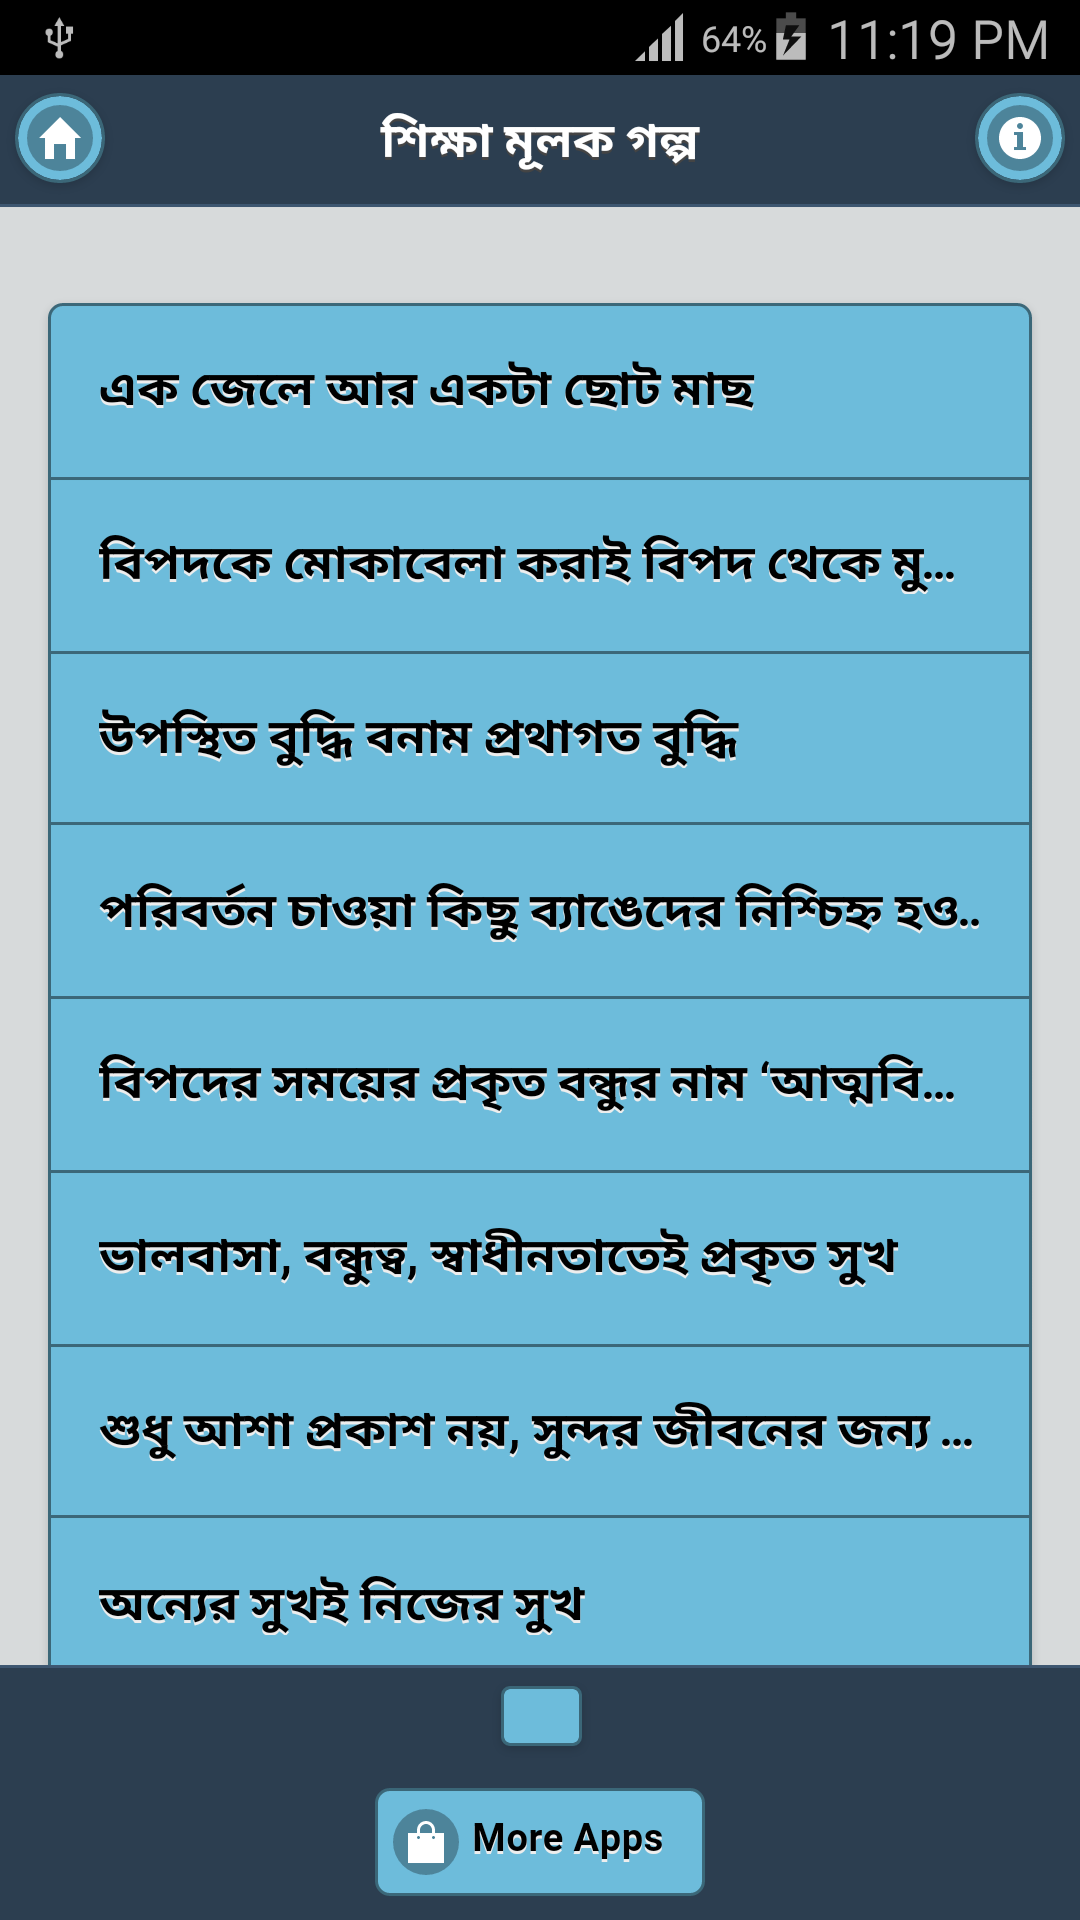 64% 11:19 PM
শিক্ষা মূলক গল্প
এক জেলে আর একটা ছোট মাছ
বিপদকে মোকাবেলা করাই বিপদ থেকে মু...
উপস্থিত বুদ্ধি বনাম প্রথাগত বুদ্ধি
পরিবর্তন চাওয়া কিছু ব্যাঙেদের নিশ্চিহ্ন হও..
বিপদের সময়ের প্রকৃত বন্ধুর নাম ‘আত্মবি...
ভালবাসা, বন্ধুত্ব, স্বাধীনতাতেই প্রকৃত সুখ
শুধু আশা প্রকাশ নয়, সুন্দর জীবনের জন্য ...
অন্যের সুখই নিজের সুখ
More Apps